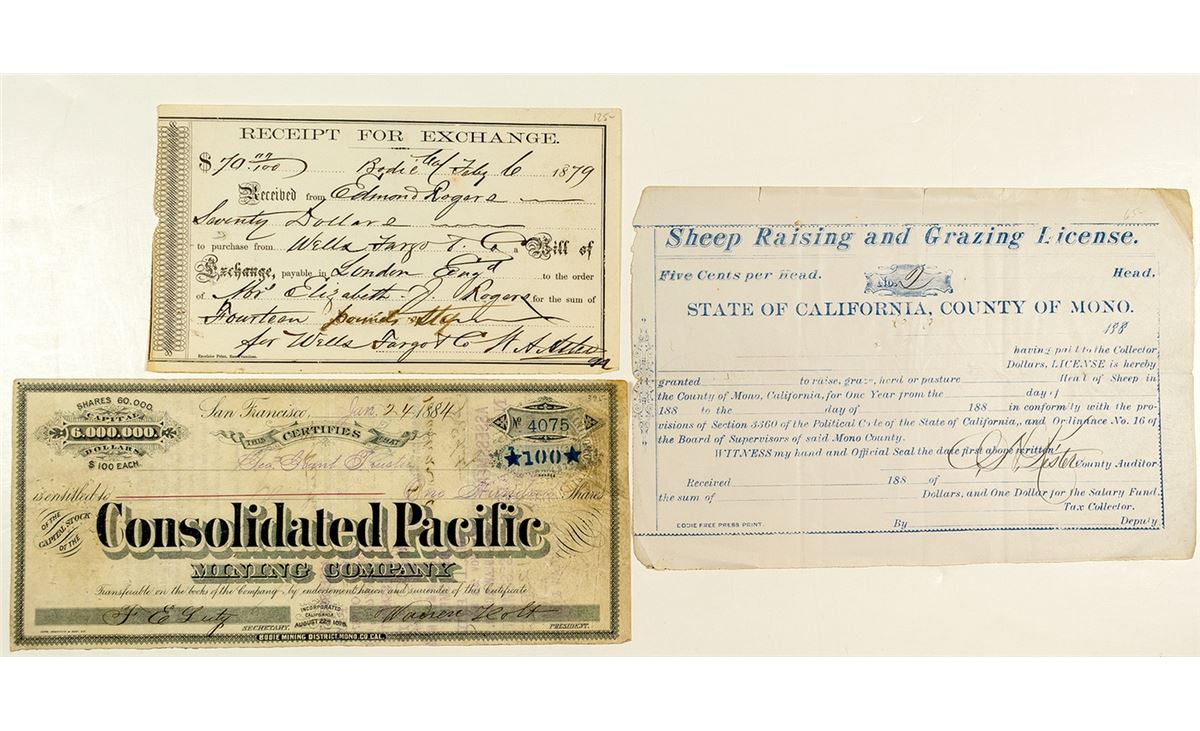 125-
RECEIPT FOR EXCHANGE.
$ 70 no/100 Bodie Feby 6 1879
Received from Edmond Rogers
Seventy Dollars
to purchase from Wells Fargo & Co a Bill of
Exchange, payable in London Eng'd to the order
of Mrs Elizabeth J. Rogers for the sum of
Fourteen pounds Stg
for Wells Fargo & Co
SHARES 60.000.
CAPITAL
6.000.000.
DOLLARS
$100 EACH.
San Francisco, Jan. 24 1884
THIS CERTIFIES THAT
Geo. Hunt Trustee
No 4075
★100★
is entitled to One Hundred Shares
OF THE CAPITAL STOCK OF THE
Consolidated Pacific
MINING COMPANY
Transferable on the books of the Company, by endorsement hereon and surrender of this Certificate
F E Lutz SECRETARY.
INCORPORATED
CALIFORNIA
AUGUST 22ND 1878
Warren Holt PRESIDENT.
BODIE MINING DISTRICT, MONO CO. CAL.
65-
Sheep Raising and Grazing License.
Five Cents per Head. No. Head.
STATE OF CALIFORNIA, COUNTY OF MONO.
188
having paid to the Collector
Dollars, LICENSE is hereby
granted to raise, graze, herd or pasture Head of Sheep in
the County of Mono, California, for One Year from the day of
188 to the day of 188 in conformity with the pro-
visions of Section 3360 of the Political Code of the State of California, and Ordinance No. 16 of
the Board of Supervisors of said Mono County.
WITNESS my hand and Official Seal the date first above written
County Auditor
Received 188 of
the sum of Dollars, and One Dollar for the Salary Fund.
Tax Collector.
BODIE FREE PRESS PRINT. By Deputy